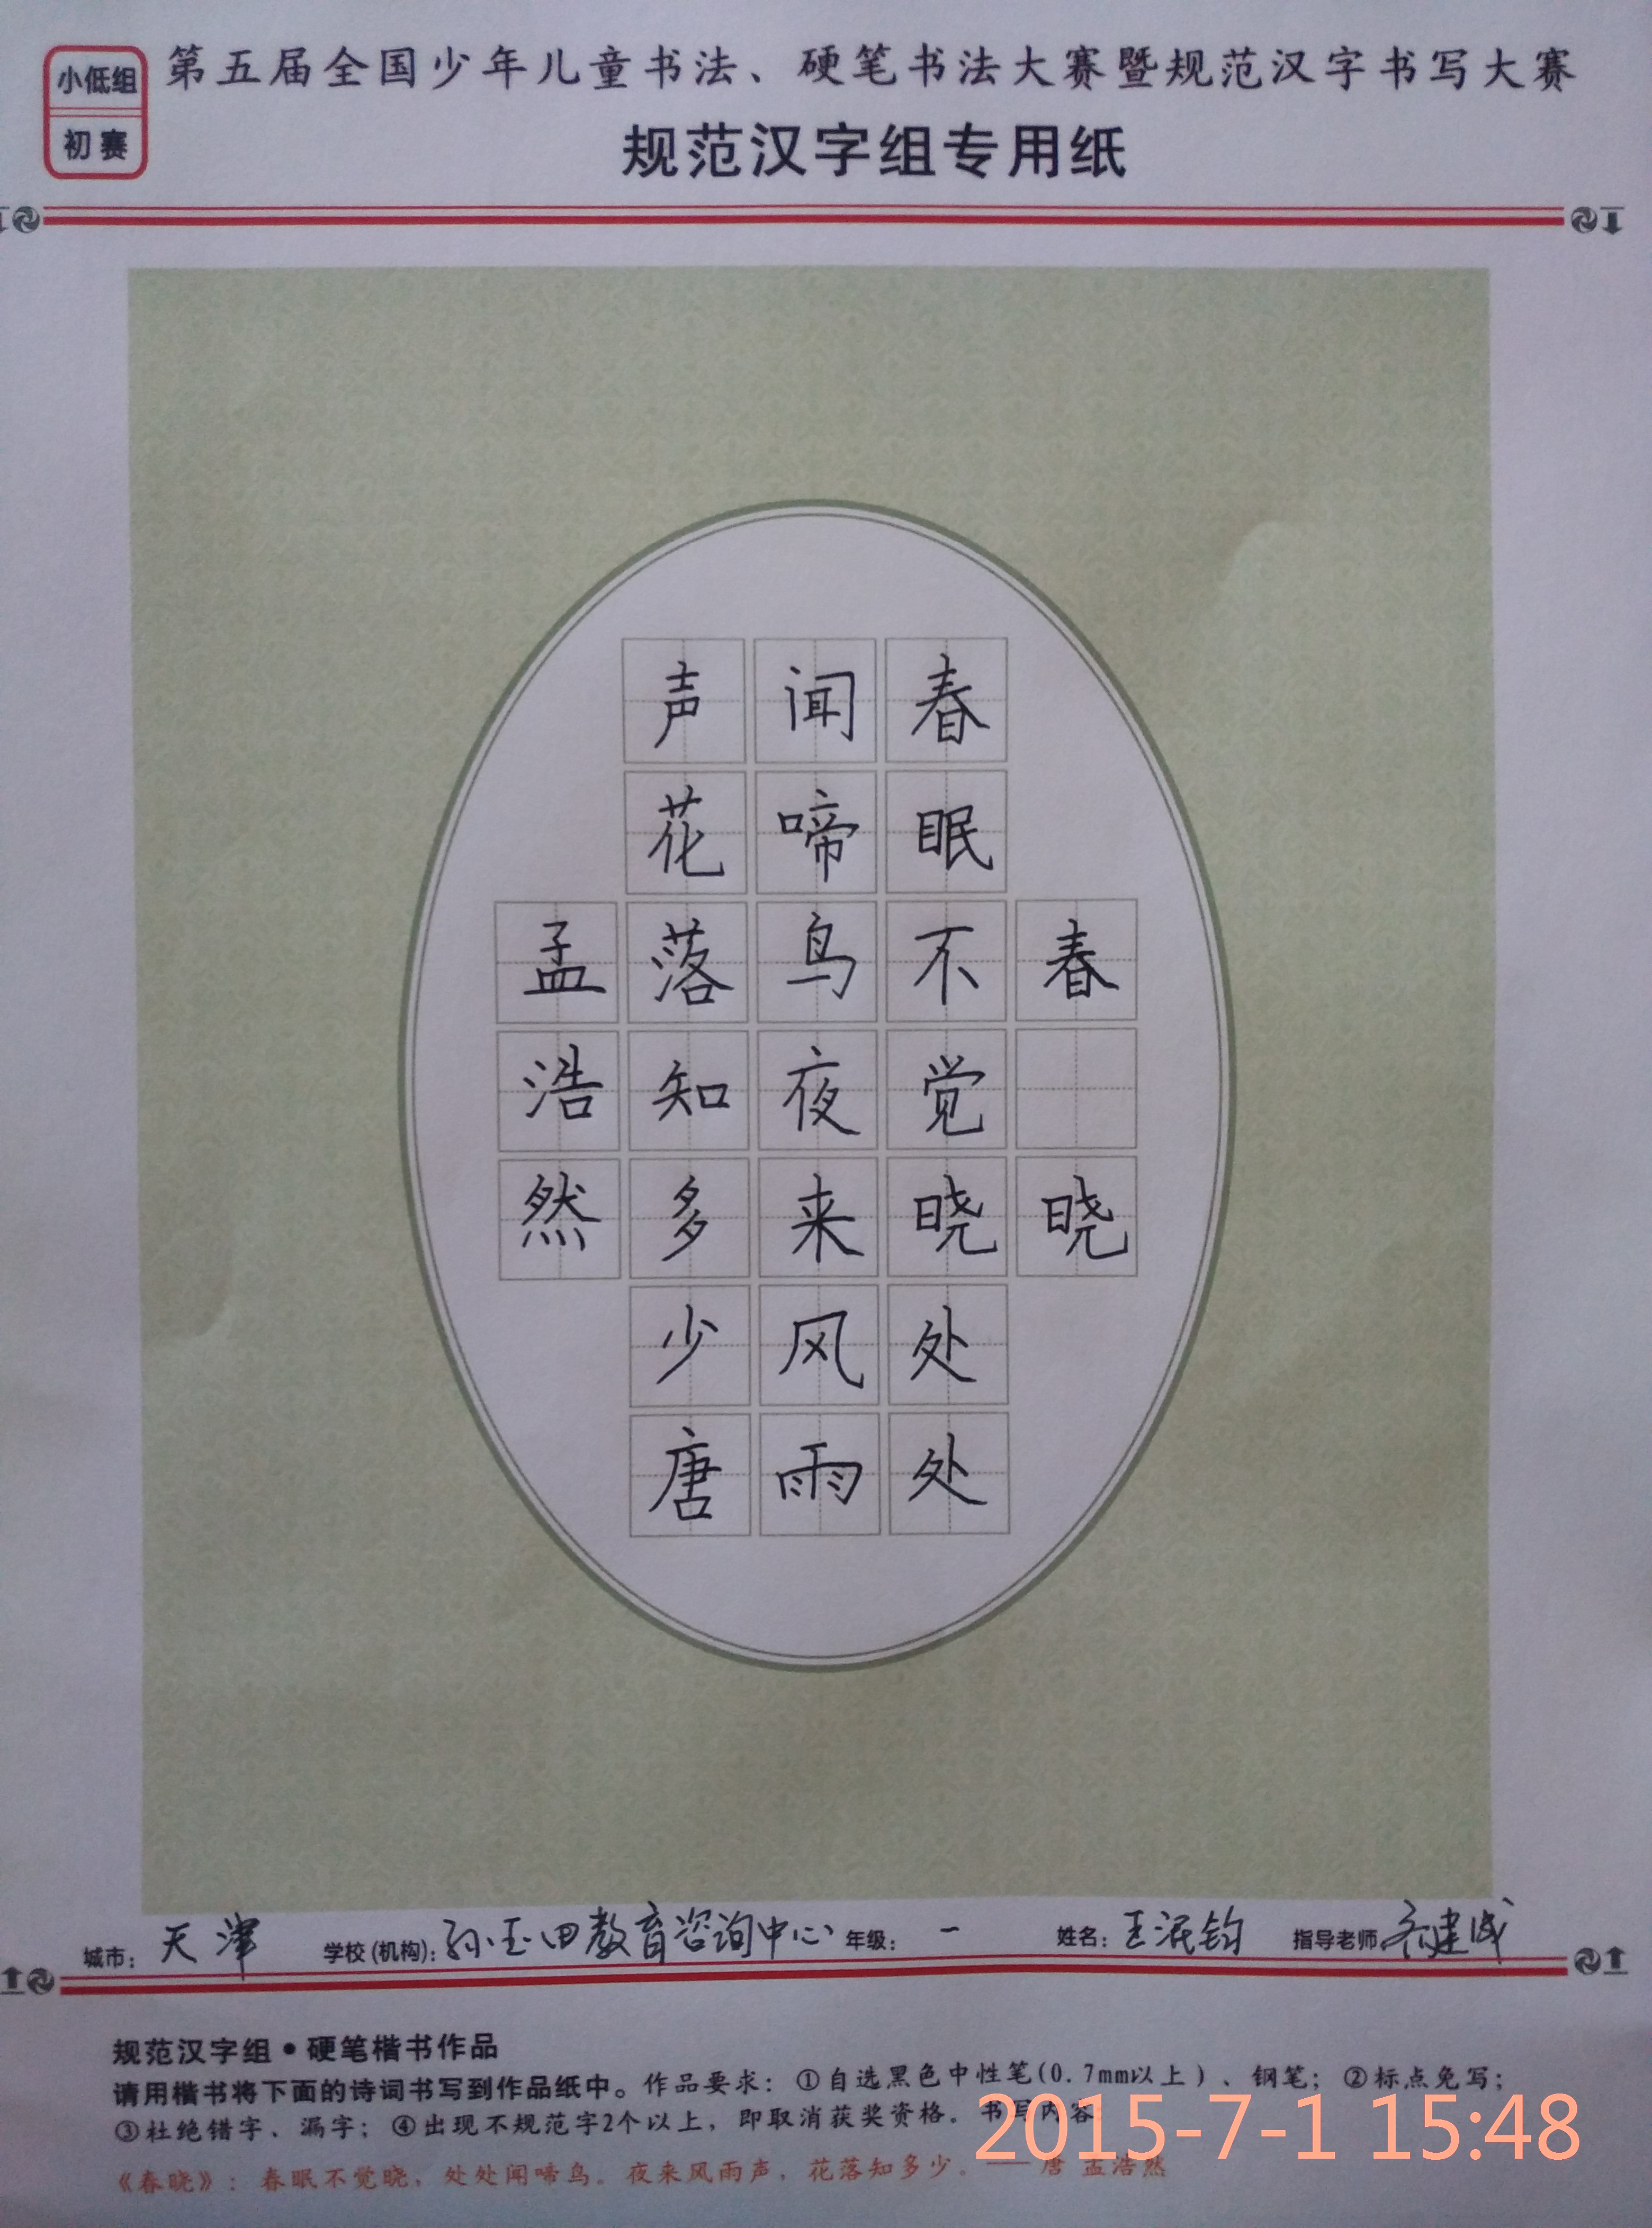 小低组
初赛
第五届全国少年儿童书法、硬笔书法大赛暨规范汉字书写大赛
规范汉字组专用纸
春晓
春眠不觉晓处处
闻啼鸟夜来风雨
声花落知多少唐
孟浩然
城市：天津 学校(机构)：孙玉田教育咨询中心 年级：一 姓名：王泥钧 指导老师 齐建成
规范汉字组•硬笔楷书作品
请用楷书将下面的诗词书写到作品纸中。作品要求：①自选黑色中性笔(0.7mm以上)、钢笔；②标点免写；
③杜绝错字、漏字；④出现不规范字2个以上，即取消获奖资格。书写内容：
《春晓》：春眠不觉晓，处处闻啼鸟。夜来风雨声，花落知多少。——唐 孟浩然
2015-7-1 15:48